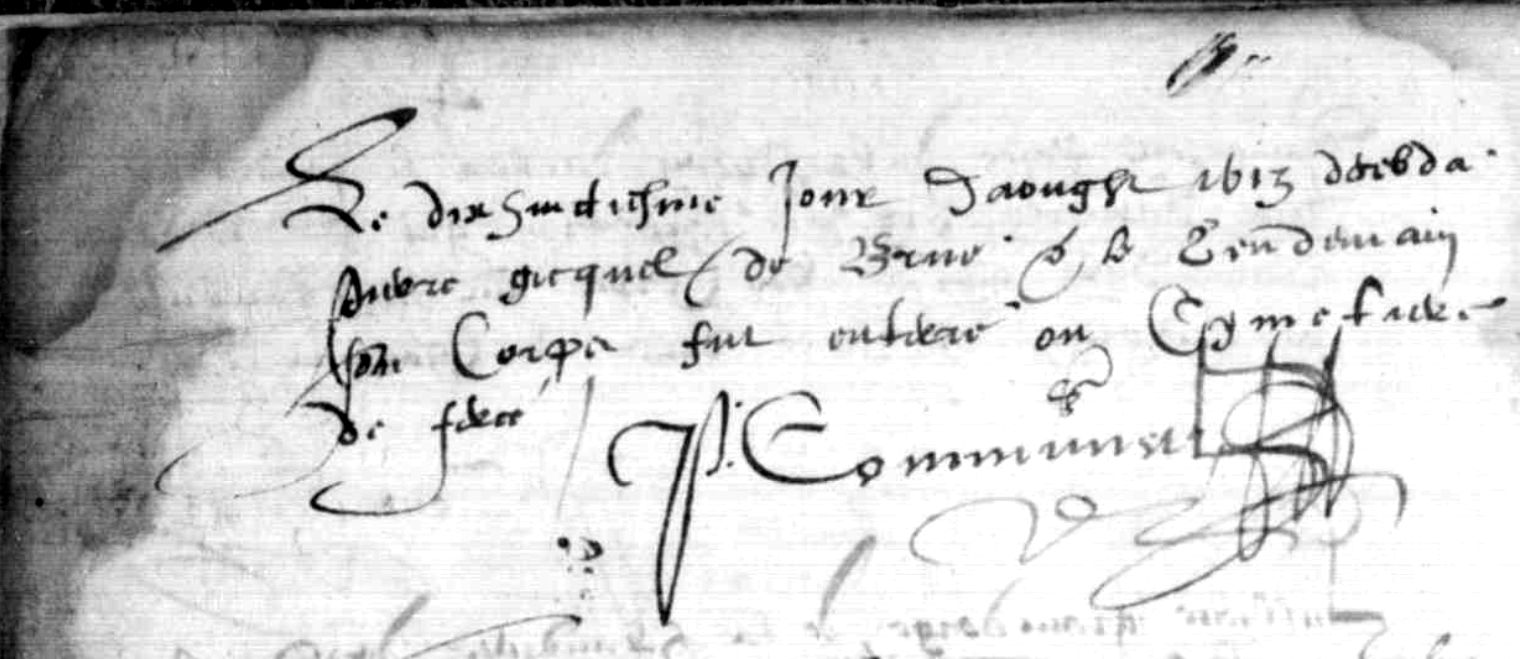 Le dixhuictiesme Jour daougst 1613 decebda
pierre gicquel de Brue & le lendemain
son Corps fut enterré on Cymetiere
de ferce
P. Communet